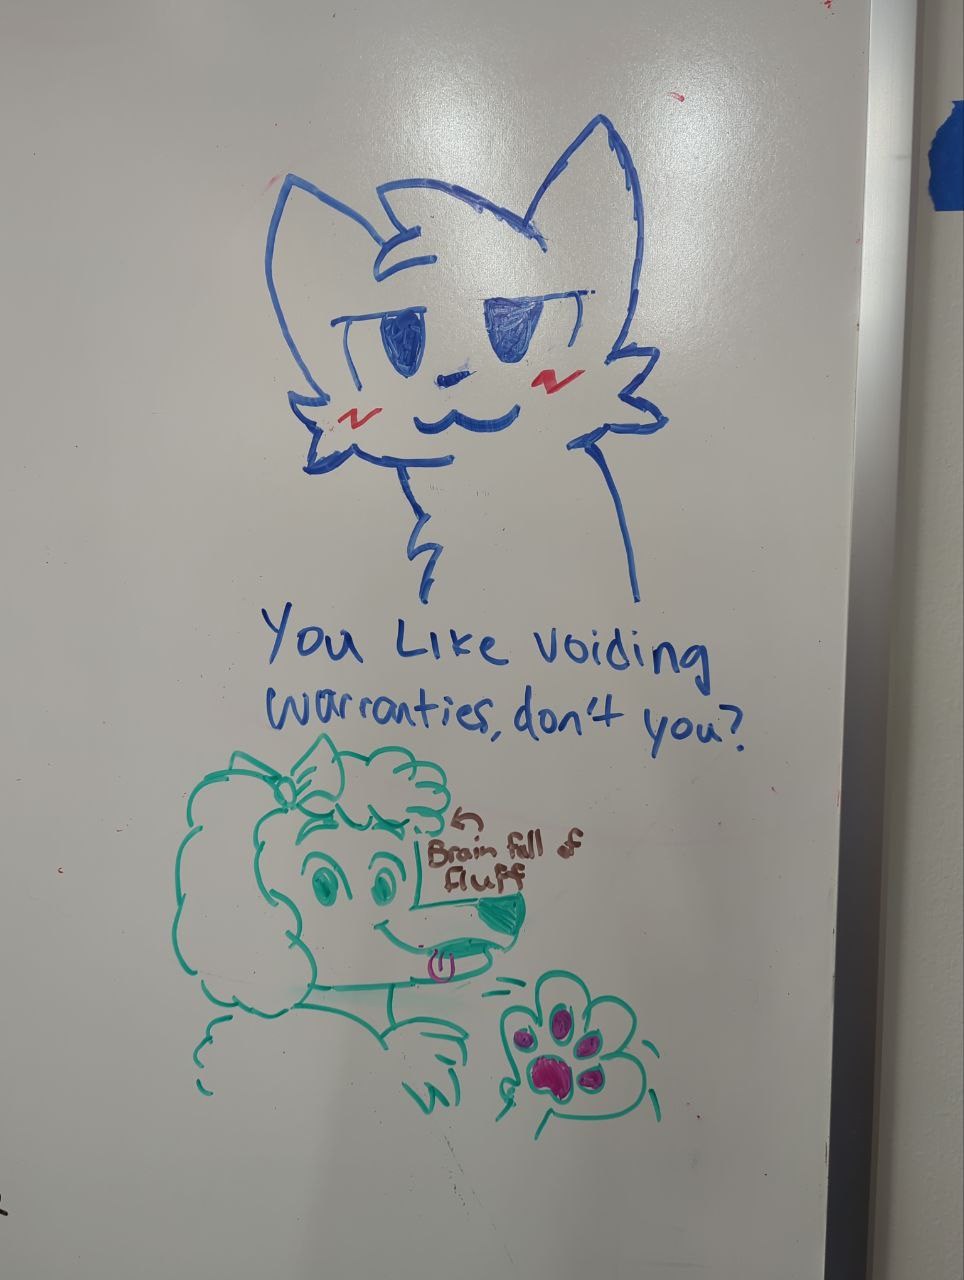 You Like voiding
warranties, don't you?
Brain full of
fluff